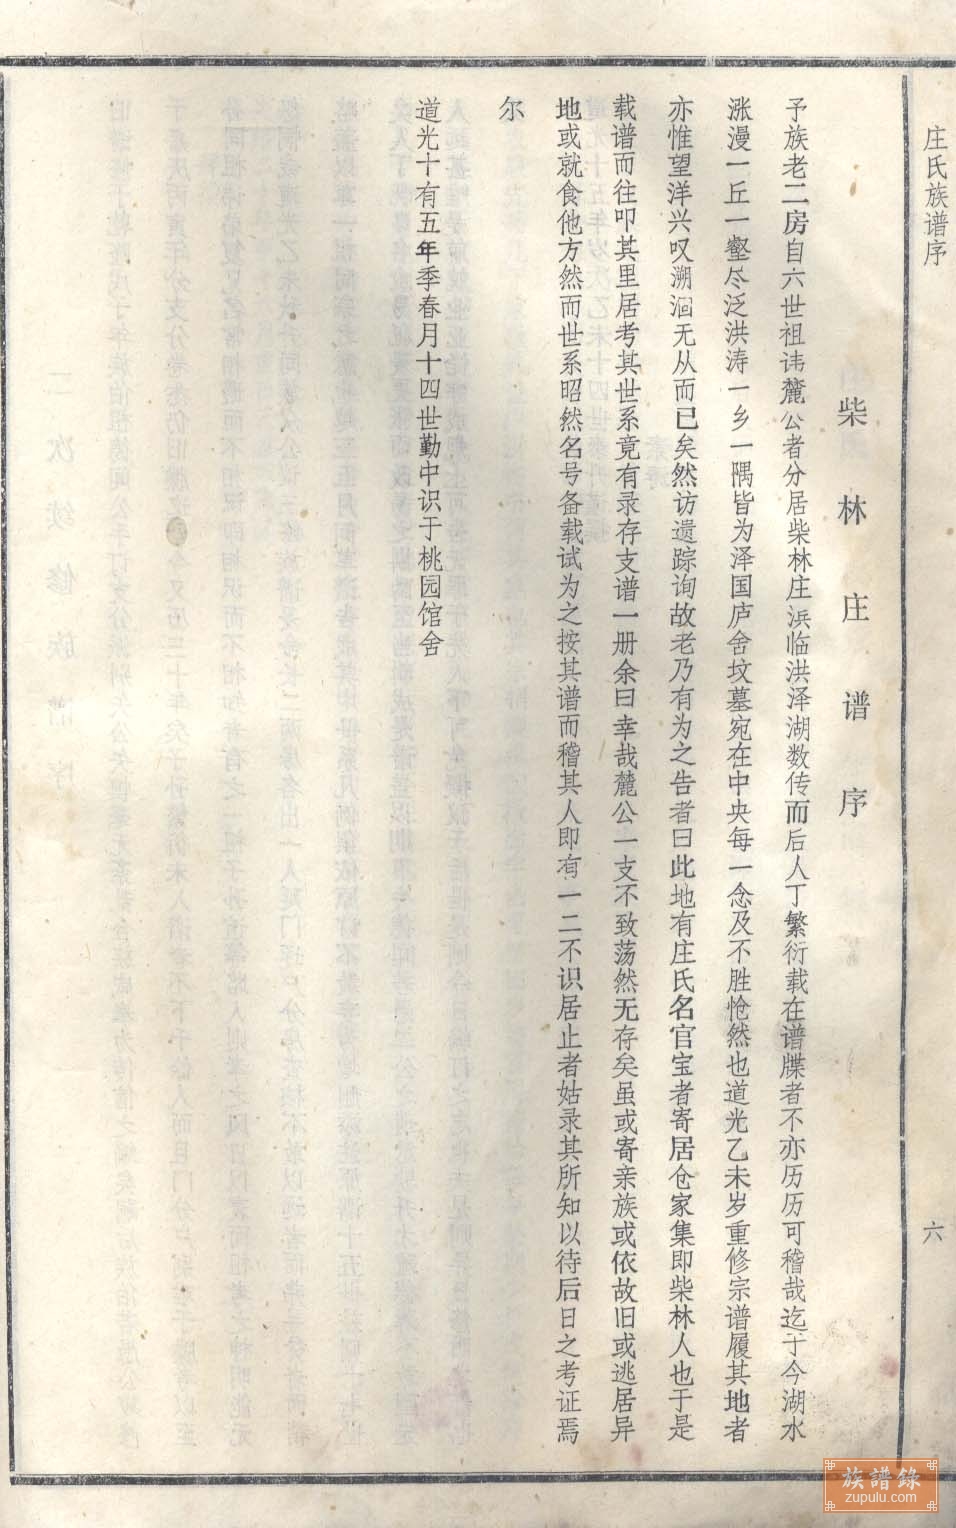 庄氏族谱序
六
柴林庄谱序
予族老二房自六世祖讳麓公者分居柴林庄浜临洪泽湖数传而后人丁繁衍载在谱牒者不亦历历可稽哉迄于今湖水
涨漫一丘一壑尽泛洪涛一乡一隅皆为泽国庐舍坟墓宛在中央每一念及不胜怆然也道光乙未岁重修宗谱履其地者
亦惟望洋兴叹溯洄无从而已矣然访遗踪询故老乃有为之告者曰此地有庄氏名官宝者寄居仓家集即柴林人也于是
载谱而往叩其里居考其世系竟有录存支谱一册余曰幸哉麓公一支不致荡然无存矣虽或寄亲族或依故旧或逃居异
地或就食他方然而世系昭然名号备载试为之按其谱而稽其人即有一二不识居止者姑录其所知以待后日之考证焉
尔
道光十有五年季春月十四世勤中识于桃园馆舍
族譜錄
zupulu.com